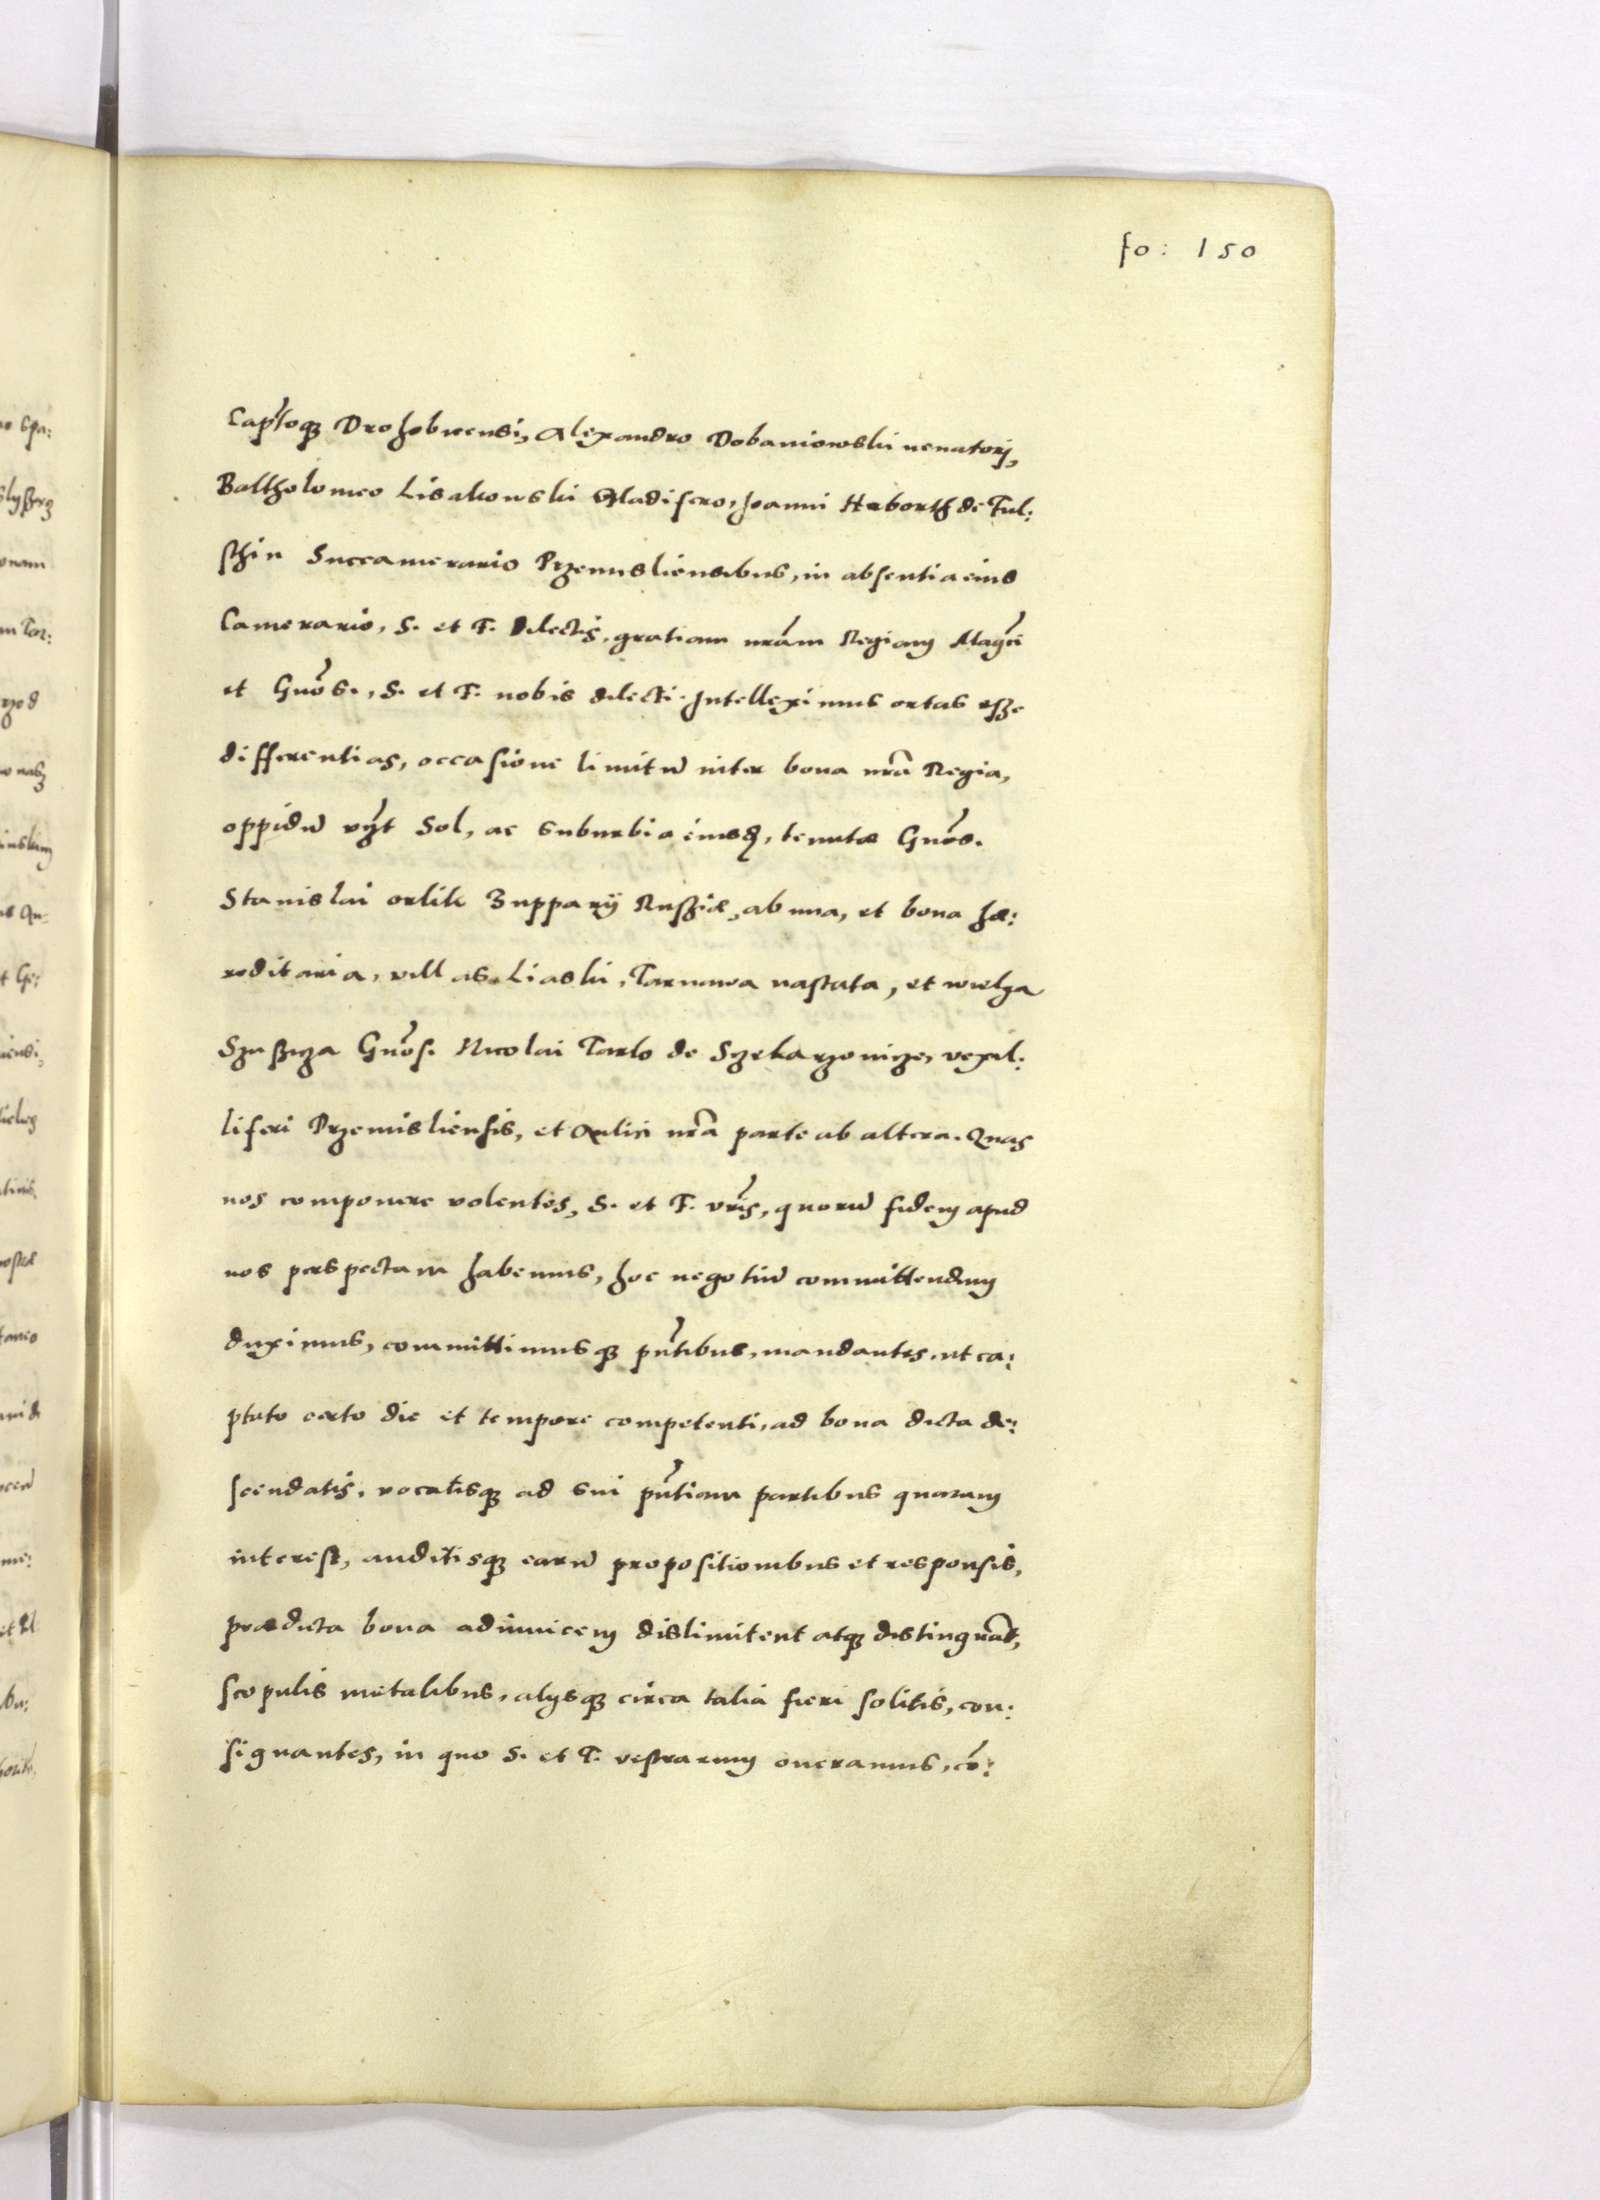 fo: 150
Cap̃toq₃ Drohobicensi, Alexandro Dobaniowski uenatorj,
Bartholomeo Lisakowski Gladifero, Joanni Herborth de Ful:
schin Succamerario Przemisliensibus, in absentia eius
Camerario, S. et F. Dilectis, gratiam nrãm Regiam Magc̃i
et Gnõs., S. et F. nobis dilecti. Intelleximus ortas esse
differentias, occasione limitũ inter bona nrã Regia,
oppidũ vȝt Sol, ac suburbia eiusdȝ, tenutæ Gnõs.
Stanislai orlik Zupparÿ Russiæ, ab una, et bona hæ:
reditaria, villas Liaski, Tarnawa uastata, et wielga
Szusicza Gnõs. Nicolai Tarlo de Szekarzowicze, vexil:
liferi Przemisliensis, et Aulici nrã parte ab altera. Quas
nos componere volentes, S. et F. vrĩs, quorũ fidem apud
nos perspectam habemus, hoc negotiũ committendum
duximus, committimusq₃ pñtibus, mandantes, ut ca:
ptato certo die et tempore competenti, ad bona dicta de:
scendatis, vocatisq₃ ad sui pñtiam partibus quarum
interest, auditisq₃ earũ propositionibus et responsis,
prædicta bona adinuicem dislimitent atq₃ distinguãt,
scopulis metalibus, alijsq₃ circa talia fieri solitis, con:
signantes, in quo S. et F. vestrarum oneramus, cõ: